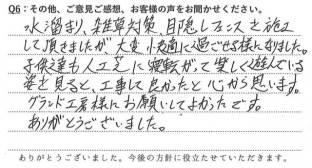 Q6：その他、ご意見ご感想、お客様の声をお聞かせください。
水溜まり、雑草対策、目隠しフェンスを施工
して頂きましたが大変快適に過ごせる様になりました。
子供達も人工芝に寝転がって楽しく遊んでいる
姿を見ると、工事して良かったと心から思います。
グランド工房様にお願いしてよかったです。
ありがとうございました。
ありがとうございました。今後の方針に役立たせていただきます。